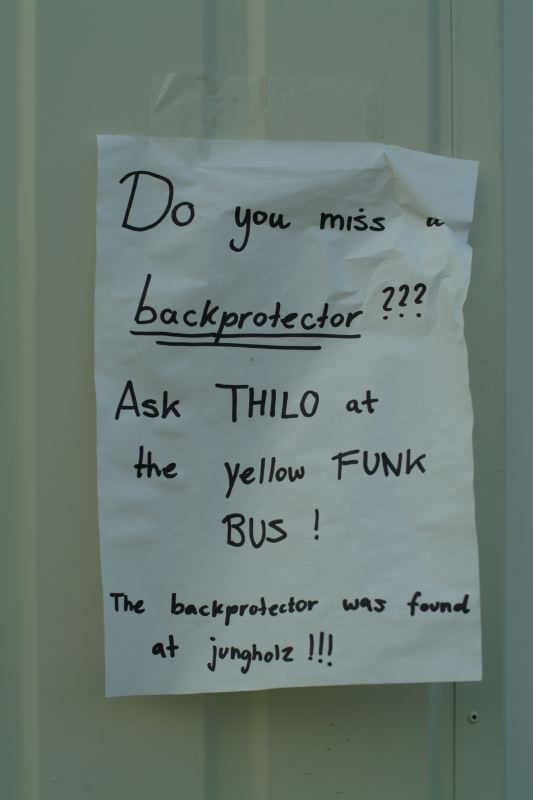 Do you miss a
backprotector ???
Ask THILO at
the yellow FUNK
BUS !
The backprotector was found
at jungholz !!!